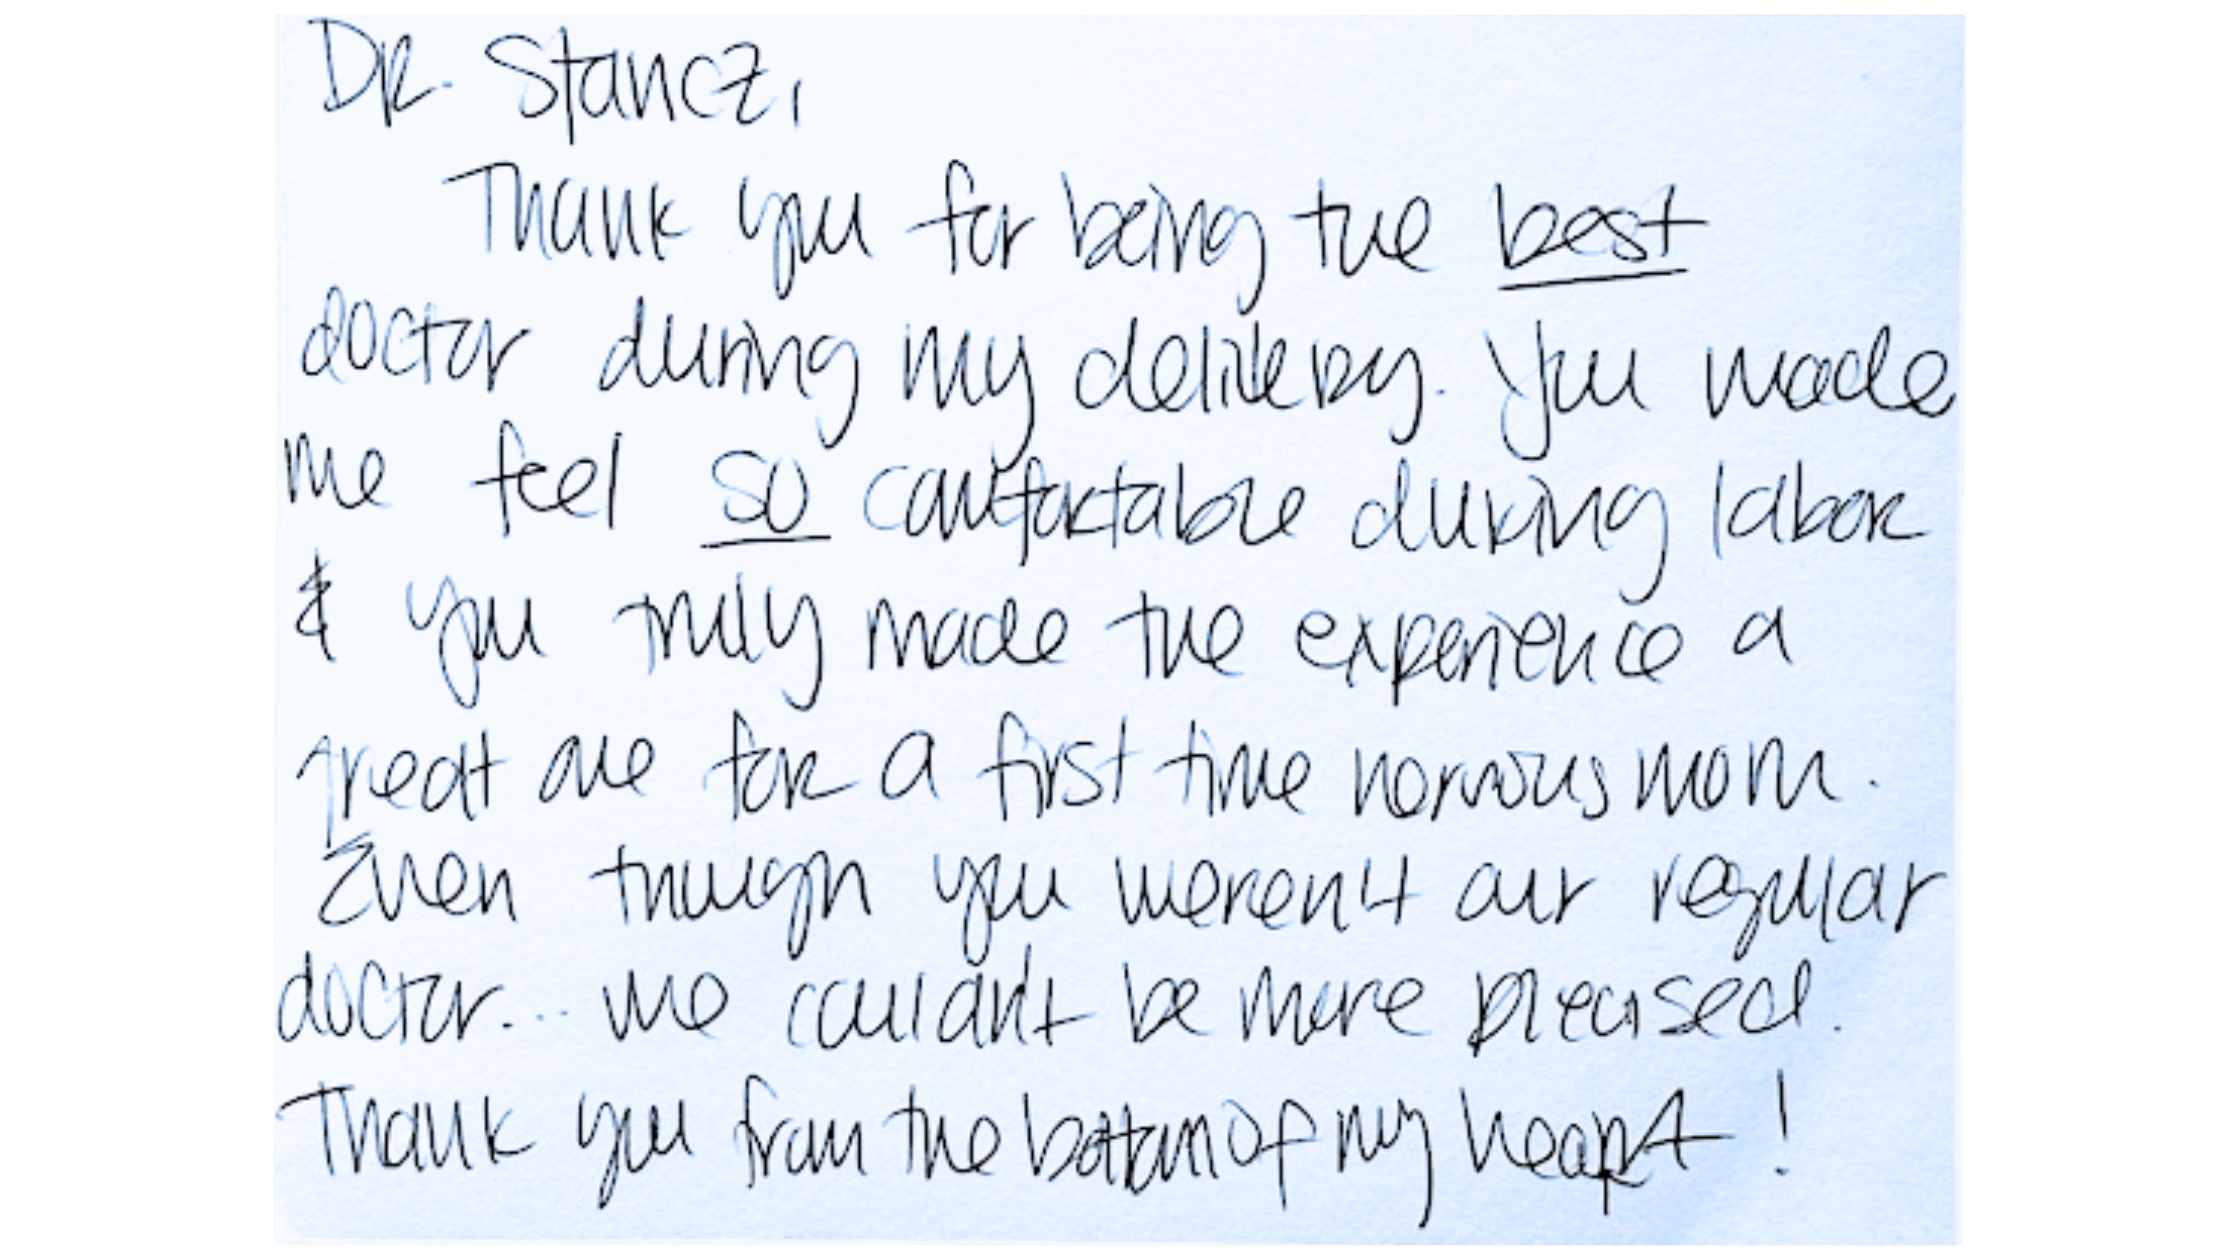 DR. Stancz,
Thank you for being the best
doctor during my delivery. You made
me feel so comfortable during labor
& you truly made the experience a
great one for a first time nervous mom.
Even though you weren't our regular
doctor... we couldn't be more pleased.
Thank you from the bottom of my heart!